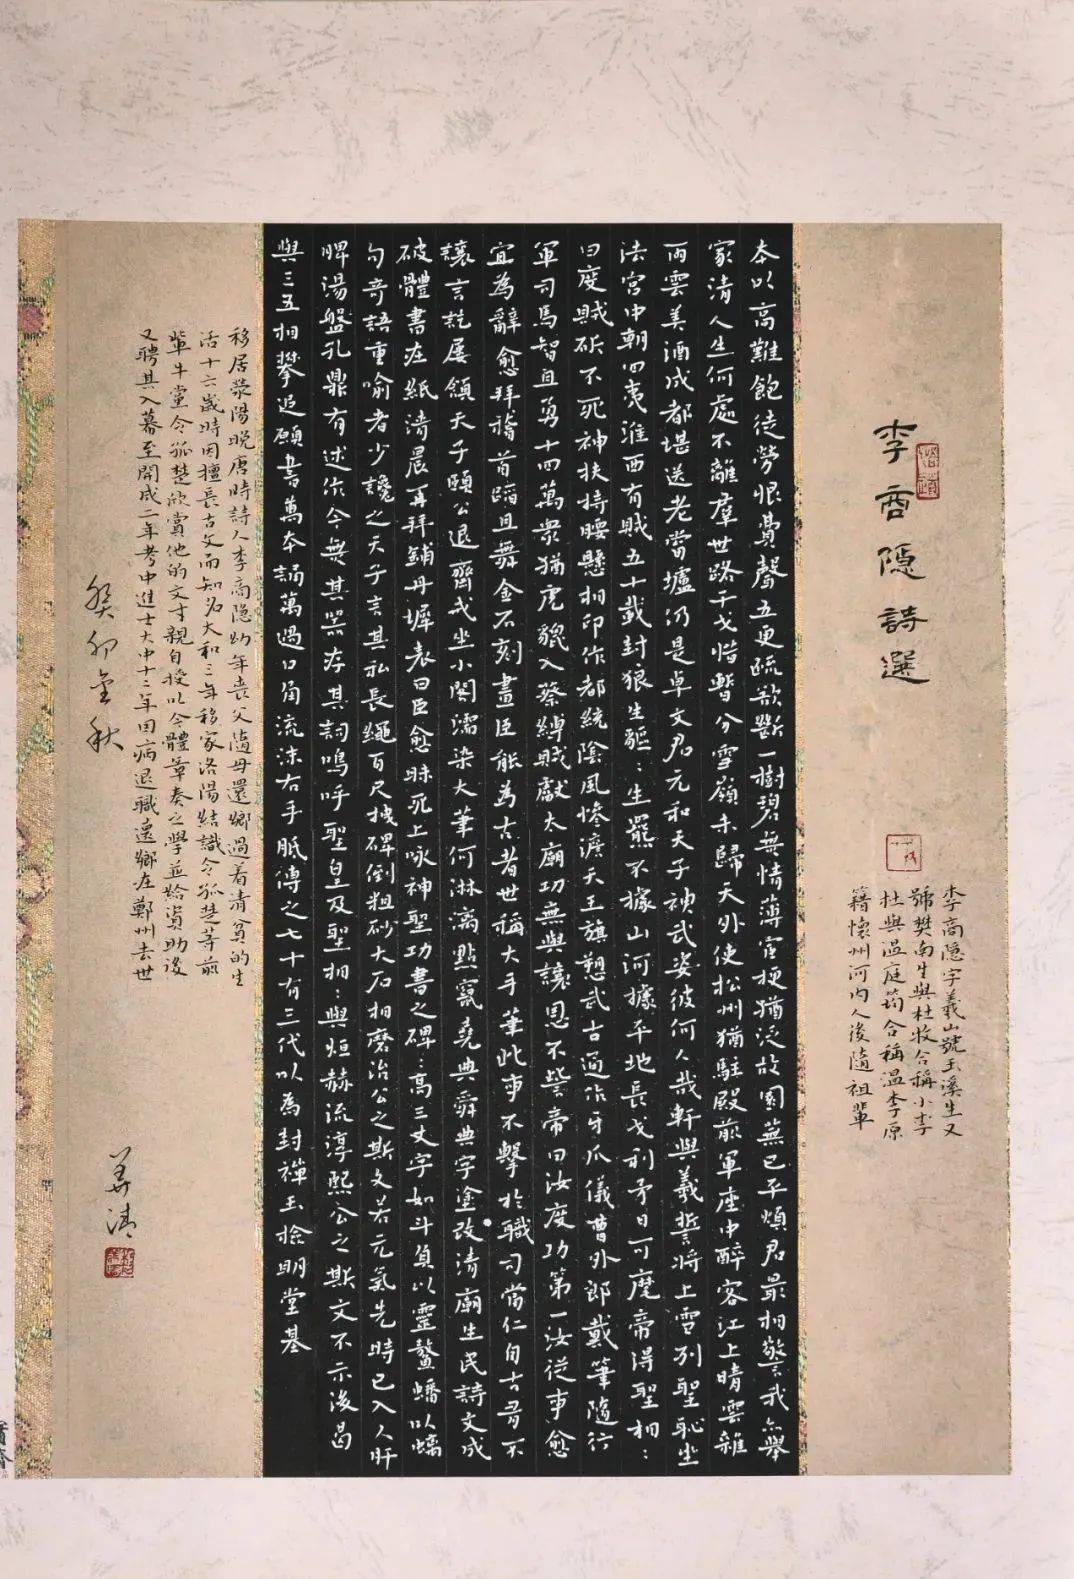 李商隱詩選
李商隱字義山號玉溪生又
號樊南生與杜牧合稱小李
杜與溫庭筠合稱溫李原
籍懷州河內人後隨祖輩
本以高難飽徒勞恨費聲五更疏欲斷一樹碧無情薄宦梗猶泛故園蕪已平煩君最相警我亦舉
家清人生何處不離羣世路干戈惜暫分雪嶺未歸天外使松州猶駐殿前軍座中醉客江上晴雲雜
雨雲美酒成都堪送老當壚仍是卓文君元和天子神武姿彼何人哉軒與羲誓將上雪列聖恥坐
法宮中朝四夷淮西有賊五十載封狼生貙:生羆不據山河據平地長戈利矛日可麾帝得聖相:
曰度賊斫不死神扶持腰懸相印作都統陰風慘澹天王旗愬武古通作牙爪儀曹外郎載筆隨行
軍司馬智且勇十四萬衆猶虎貔入蔡縛賊獻太廟功無與讓恩不訾帝曰汝度功第一汝從事愈
宜為辭愈拜稽首蹈且舞金石刻畫臣能為古者世稱大手筆此事不繫於職司當仁自古有不
讓言訖屢頷天子頤公退齋戒坐小閣濡染大筆何淋漓點竄堯典舜典字塗改清廟生民詩文成
破體書在紙清晨再拜鋪丹墀表曰臣愈昧死上咏神聖功書之碑:高三丈字如斗負以靈鰲蟠以螭
句奇語重喻者少讒之天子言其私長繩百尺拽碑倒粗砂大石相磨治公之斯文若元氣先時已入人肝
脾湯盤孔鼎有述作今無其器存其詞嗚呼聖皇及聖相:與烜赫流淳熙公之斯文不示後曷
與三五相攀追願書萬本誦萬過口角流沫右手胝傳之七十有三代以為封禪玉檢明堂基
移居滎陽晚唐時詩人李商隱幼年喪父隨母還鄉過着清貧的生
活十六歲時因擅長古文而知名大和三年移家洛陽結識令孤楚等前
輩牛黨令孤楚欣賞他的文才親自授以今體章奏之學並給資助後
又聘其入幕至開成二年考中進士大中十二年因病退職還鄉在鄭州去世
癸卯金秋